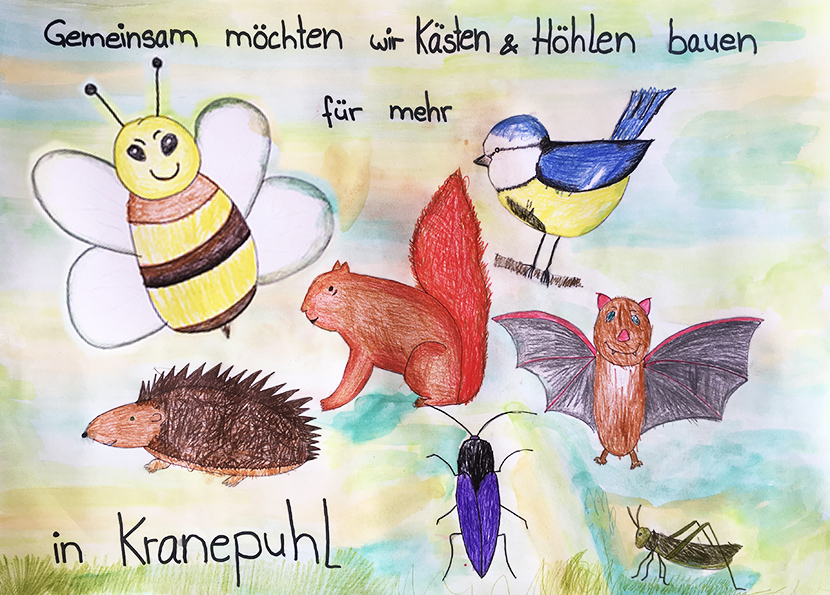 Gemeinsam möchten wir Kästen & Höhlen bauen
für mehr
in Kranepuhl